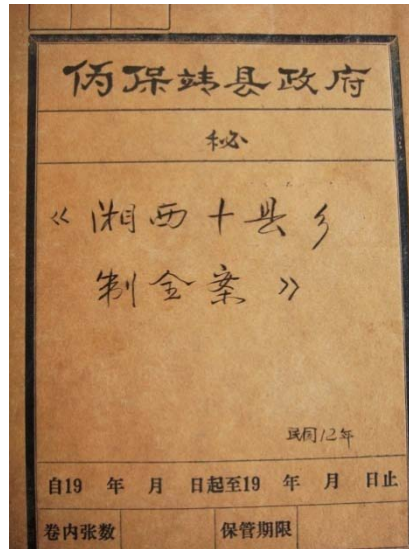 伪保靖县政府
秘
《湘西十县乡
制全案》
民国12年
自19 年 月 日起至19 年 月 日止
卷内张数 保管期限